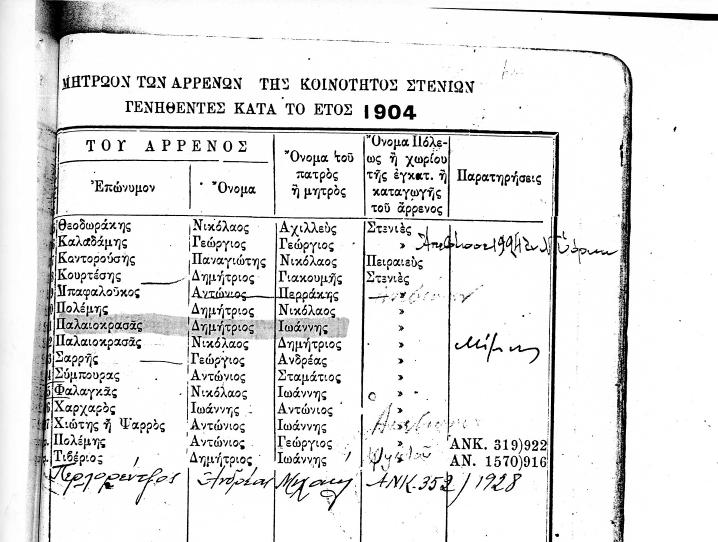 ΜΗΤΡΩΟΝ ΤΩΝ ΑΡΡΕΝΩΝ ΤΗΣ ΚΟΙΝΟΤΗΤΟΣ ΣΤΕΝΙΩΝ
ΓΕΝΗΘΕΝΤΕΣ ΚΑΤΑ ΤΟ ΕΤΟΣ 1904
ΤΟΥ ΑΡΡΕΝΟΣ
Ἐπώνυμον Ὄνομα Ὄνομα τοῦ πατρὸς ἢ μητρὸς Ὄνομα Πόλεως ἢ χωρίου τῆς ἐγκατ. ἢ καταγωγῆς τοῦ ἄρρενος Παρατηρήσεις
Θεοδωράκης Νικόλαος Ἀχιλλεὺς Στενιὲς
Καλαδάμης Γεώργιος Γεώργιος »
Κοντορούσης Παναγιώτης Νικόλαος Πειραιεὺς
Κουρτέσης Δημήτριος Γιακουμῆς Στενιὲς
Μπαφαλοῦκος Αντώνιος Περράκης
Πολέμης Δημήτριος Νικόλαος »
Παλαιοκρασᾶς Δημήτριος Ἰωάννης »
Παλαιοκρασᾶς Νικόλαος Δημήτριος »
Σαρρῆς Γεώργιος Ἀνδρέας »
Σύμπουρας Αντώνιος Σταμάτιος »
Φαλαγκᾶς Νικόλαος Ἰωάννης »
Χαρχαρὸς Ἰωάννης Αντώνιος »
Χιώτης ἢ Ψαρρὸς Αντώνιος Ἰωάννης »
Πολέμης Αντώνιος Γεώργιος » ΑΝΚ. 319)922
Τιβέριος Δημήτριος Ἰωάννης ΑΝ. 1570)916
Ἀνδρέας ΑΝΚ. 352/1928